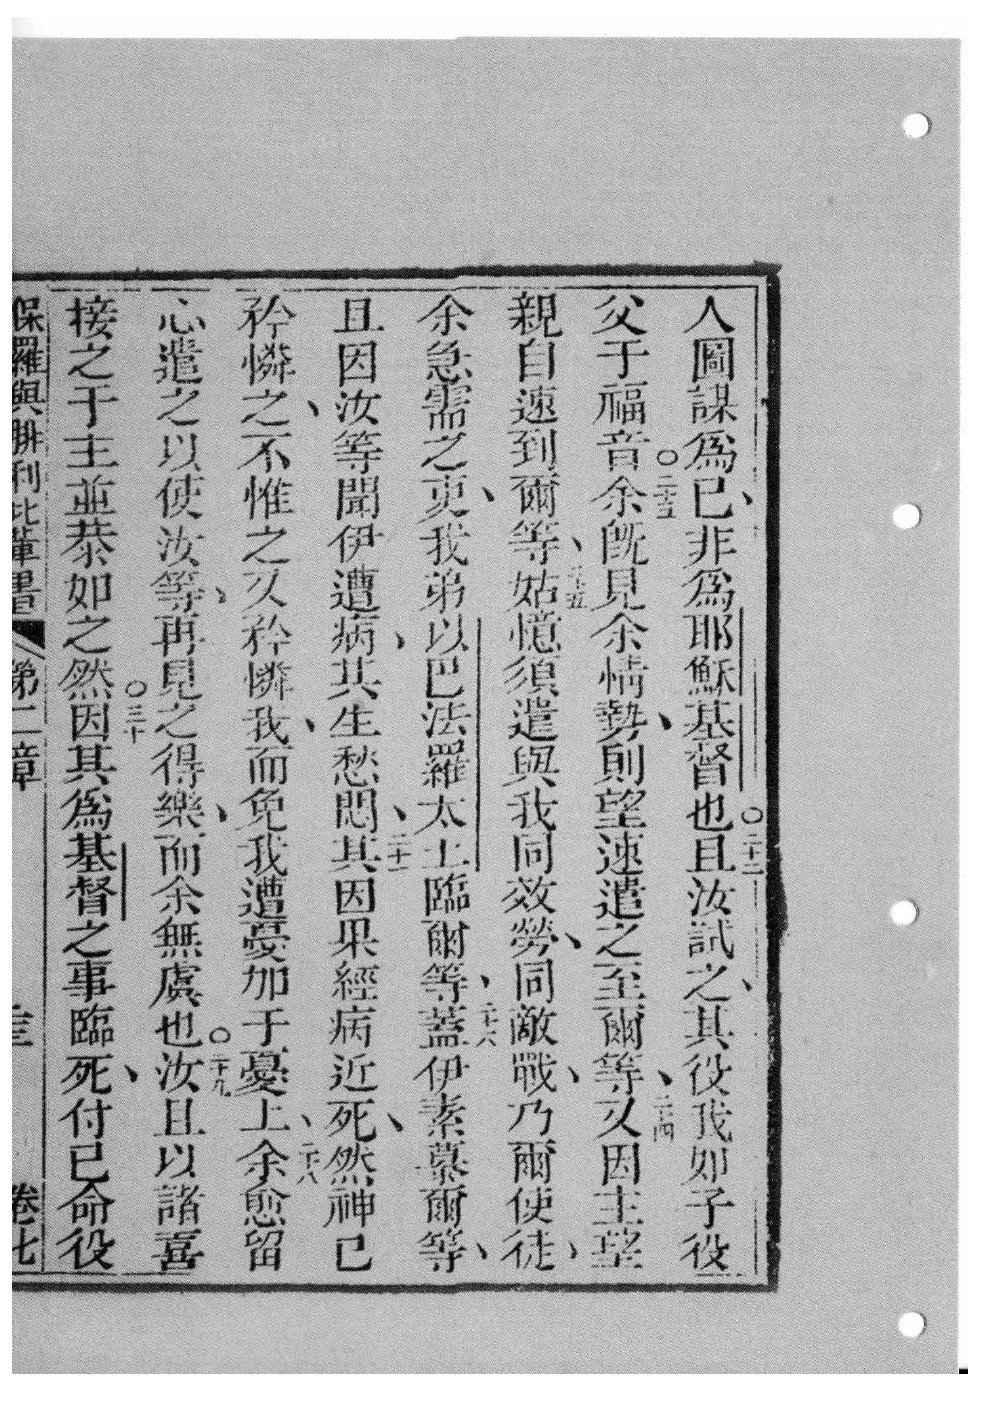 人圖謀為已、非為耶穌基督也○二十二且汝試之、其役我如子役
父于福音○二十三余既見余情勢、則望速遣之至爾等、二十四又因主望
親自速到爾等、二十五姑憶須遣與我同效勞、同敵戰、乃爾使徒、
余急需之吏、我弟以巴法羅太士臨爾等、二十六蓋伊素慕爾等、
且因汝等聞伊遭病、其生愁悶、二十七其因果經病近死、然神已
矜憐之、不惟之又矜憐我、而免我遭憂加于憂上、二十八余愈留
心遣之以使汝等、再見之得樂、而余無虞也○二十九汝且以諸喜
接之于主並恭如之然○三十因其為基督之事臨死、付已命役
保羅與腓利比輩書 第二章 卷七